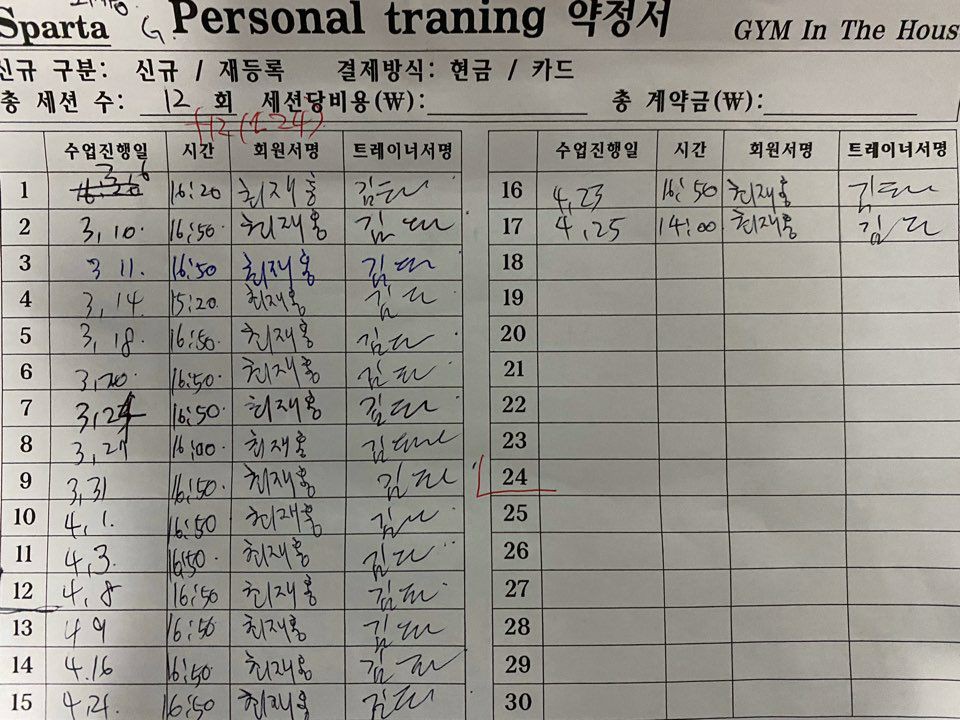 Sparta G. Personal traning 약정서 GYM In The Hous
신규 구분: 신규 / 재등록 결제방식: 현금 / 카드
총 세션 수: 12 회 세션당비용(₩): 총 계약금(₩):
+12 (총 24)
수업진행일 시간 회원서명 트레이너서명
3, 6
1 16:20 최재홍
2 3, 10. 16:50 최재홍
3 3 11. 16:50 최재홍
4 3, 14. 15:20 최재홍
5 3, 18. 16:50 최재홍
6 3,20. 16:50 최재홍
7 3,24 16:50 최재홍
8 3,27 16:00 최재홍
9 3,31 16:50 최재홍
10 4, 1. 16:50 최재홍
11 4, 3. 16:50 최재홍
12 4, 8 16:50 최재홍
13 4 9 16:50 최재홍
14 4.16 16:50 최재홍
15 16:50 최재홍
수업진행일 시간 회원서명 트레이너서명
16 4,23 16:50 최재홍
17 4,25 14:00 최재홍
18
19
20
21
22
23
24
25
26
27
28
29
30